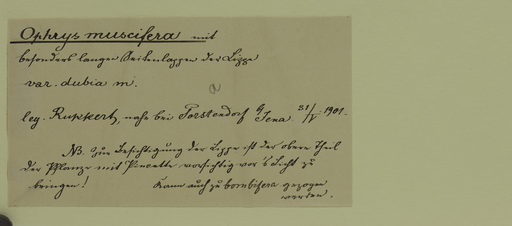 Ophrys muscifera mit
besonders langen Seitenlappen der Lippe
var. dubia m.
a
leg. Ruppert, nahe bei Porstendorf b/ Jena 31/V. 1901.
NB. Zur Besichtigung der Lippe ist der obere Theil
der Pflanze mit Pincette vorsichtig vor's Licht zu
bringen! Kann auch zu bombifera gezogen
werden.